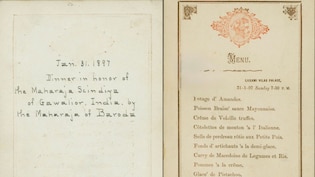 Jan. 31. 1897
Dinner in honor of
the Maharaja Scindiya
of Gwalior, India, by
the Maharaja of Baroda
MENU.
LUXMI VILAS PALACE,
31-1-97 Sunday 7-30 P. M.
Potage d' Amandes.
Poisson Braisé sauce Mayonnaise.
Crême de Volaille truffes.
Côtelettes de mouton à l' Italienne.
Salle de perdreau rôtie aux Petits Pois.
Fonds d' artichauts à la demi-glace.
Curry de Macedoine de Legumes et Riz.
Pommes à la crême.
Glacé de Pistaches.